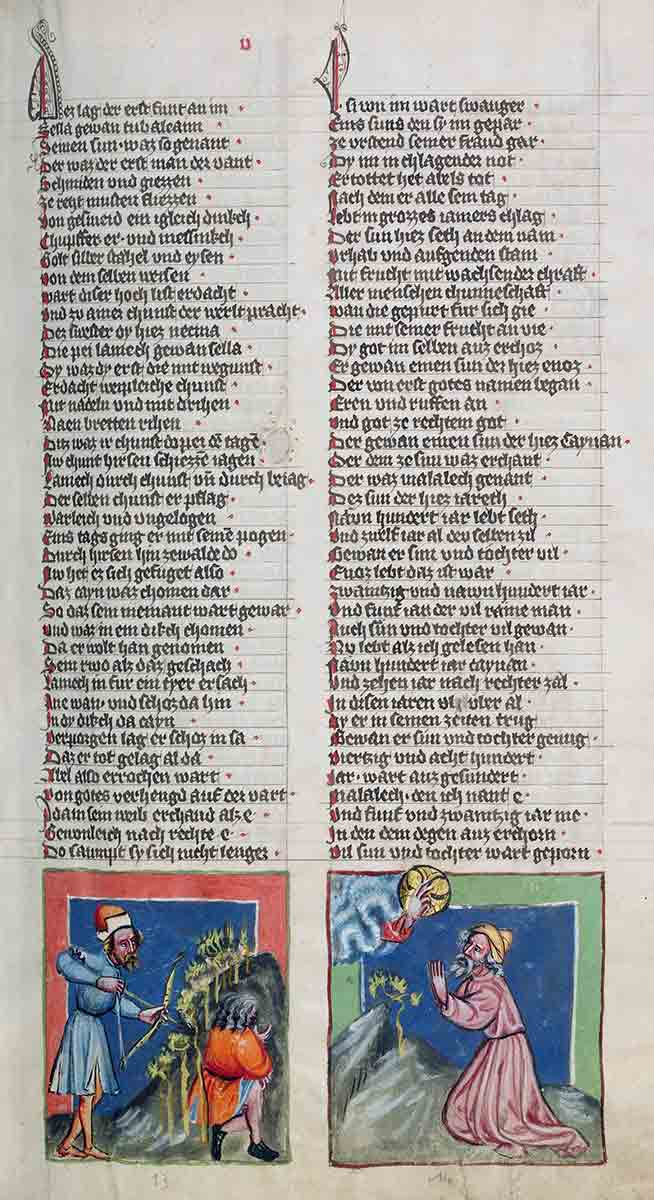 v
Dez lag der erst funt an im
Sella gewan tubalcaim
Seinen sun waz so genant
Der waz der erst man der vant
Schmiden und giezzen
ze reht musten fliezzen
Von gesmeid ein igleich dinkch
Chupffer er und messinkch
Golt silber stahel und eysen
Von dem selben weisen
wart diser hoch list erdacht
Und zu amer chunst der werlt pracht
Der swester dy hiez neema
Die pei lamech gewan sella
Sy waz dy erst die mit
Erdacht weipleiche chunst
Mit nadeln und mit drihen
Naen bretten rihen
Ditz waz ir chunst do pei den tagen
Nw chunt hirsen schiezzen iagen
Lamech durch chunst vnd durch beiag
Der selben chunst er pflag
Warleich und ungelogen
Eins tags ging er mit seinem pogen
Durch hirsen hin ze walde do
Nw het ez sich gefuget also
Daz cayn waz chomen dar
So daz sein niemant wart gewar
Und waz in ein dikch chomen
Da er wolt han genomen
Sein rwo alz daz geschach
Lamech in fur ein tyer ersach
Ane wan und schoz da hin
In dy dikch da cayn
Verporgen lag er schoz in sa
Daz er tot gelag al da
Abel also errochen wart
Von gotes verhengd auf der vart
Adam sein weib erchand alz e
Gewonleich nach rechter e
Do saumpt sy sich nicht lenger
Si von im wart swanger
Eins suns den sy im gepar
ze vrstend seiner fraud gar
Dy im in chlagender not
Ertottet het abels tot
Nach dem er alle sein tag
Lebt in grozzes iamers chlag
Der sun hiez seth an dem nam
Vrhab und aufgenden stam
Mit frucht mit wachsender chraft
Aller menschen chunneschaft
wan die gepurt fur sich gie
Die mit seiner frucht an vie
Dy got im selben auz erchoz
Er gewan einen sun der hiez enoz
Der von erst gotes namen began
Eren und ruffen an
Und got ze rechtem got
Der gewan einen sun der hiez Caynan
Der dem ze sun waz erchant
Der waz malalech genant
Dez sun der hiez iareth
Naun hundert iar lebt seth
Und zwelf iar al den selben zil
Gewan er sun und tochter vil
Enoz lebt daz ist war
zwaintzig und nawn hundert iar
Und funf iar der vil raine man
Auch sun und tochter vil gewan
Nv lebt alz ich gelesen han
Naun hundert iar caynan
Und zehen iar nach rechter zal
In disen iaren uber al
Dy er in seinen zeiten trug
Gewan er sun und tochter genug
Viertzig und acht hundert
Iar wart auz gesundert
Malalech den ich nant e
Und funf und zwaintzig iar me
In den dem degen auz erchorn
Vil sun und tochter wart geporn